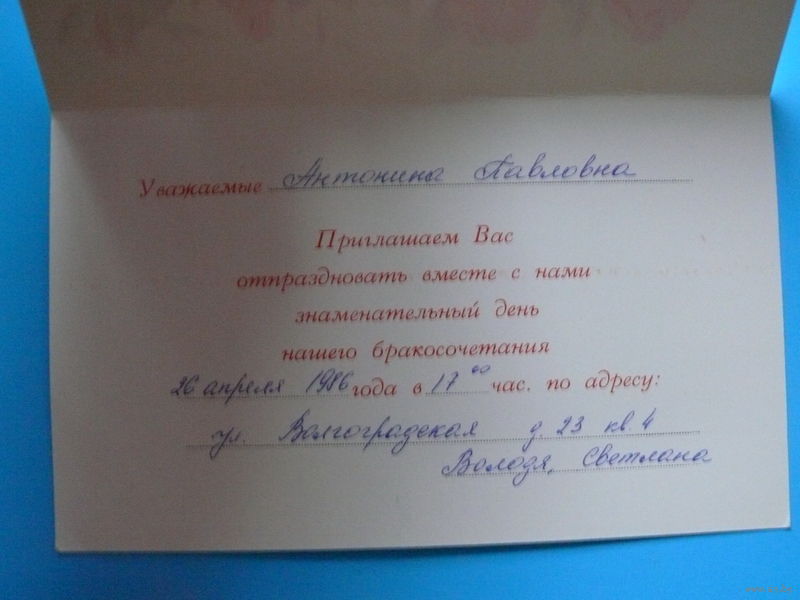 Уважаемые Антонина Павловна
Приглашаем Вас
отпраздновать вместе с нами
знаменательный день
нашего бракосочетания
26 апреля 1986 года в 17⁰⁰ час. по адресу:
ул. Волгоградская д. 23 кв. 4
Володя, Светлана